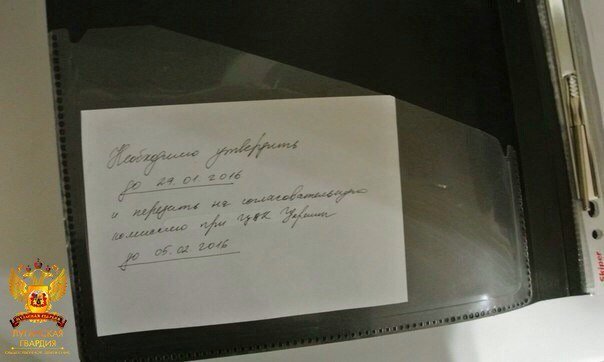 Необходимо утвердить
до 29.01.2016
и передать на согласовательную
комиссию при ЦИК Украины
до 05.02.2016
ЛУГАНСКАЯ ГВАРДИЯ
ЛУГАНСКАЯ
ГВАРДИЯ
skiper